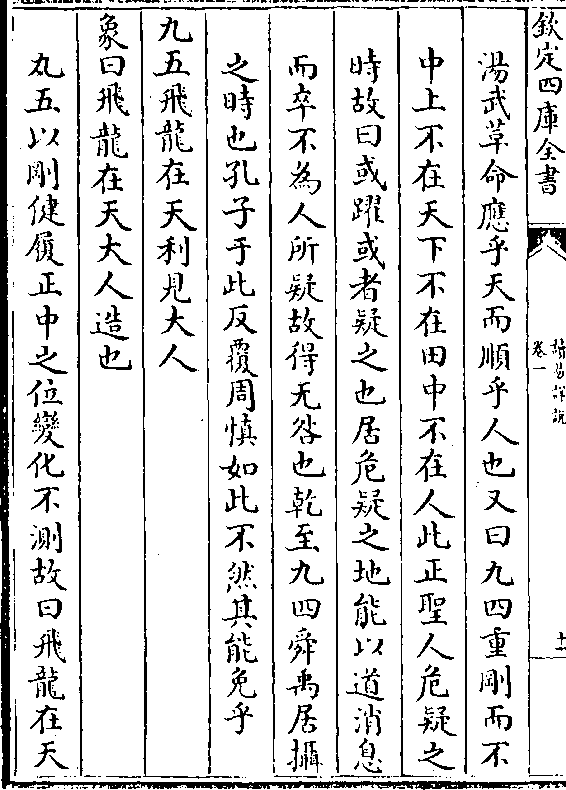 欽定四庫全書
讀易詳說
卷一
十一
湯武革命應乎天而順乎人也又曰九四重剛而不
中上不在天下不在田中不在人此正聖人危疑之
時故曰或躍或者疑之也居危疑之地能以道消息
而卒不為人所疑故得无咎也乾至九四舜禹居攝
之時也孔子于此反覆周慎如此不然其能免乎
九五飛龍在天利見大人
象曰飛龍在天大人造也
九五以剛健履正中之位變化不測故曰飛龍在天